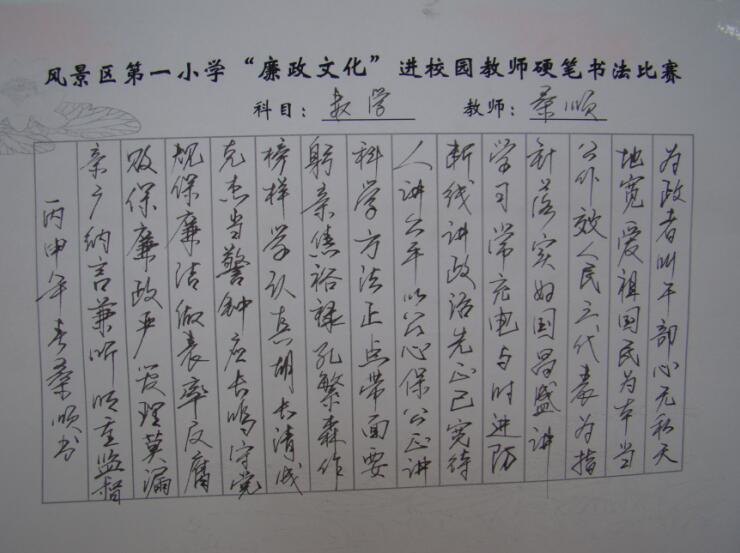 风景区第一小学“廉政文化”进校园教师硬笔书法比赛
科目：数学 教师：秦顺
为政者叫干部心无私天
地宽爱祖国民为本当
公仆效人民三代表为指
针落实好国昌盛讲
学习常充电与时进防
断线讲政治先正己宽待
人讲公平以公心保公正讲
科学方法正点带面要
躬亲焦裕禄孔繁森作
榜样学认真胡长清成
克杰当警钟应长鸣守党
规保廉洁做表率反腐
败保廉政严管理莫漏
亲广纳言兼听明重监督
丙申年春秦顺书